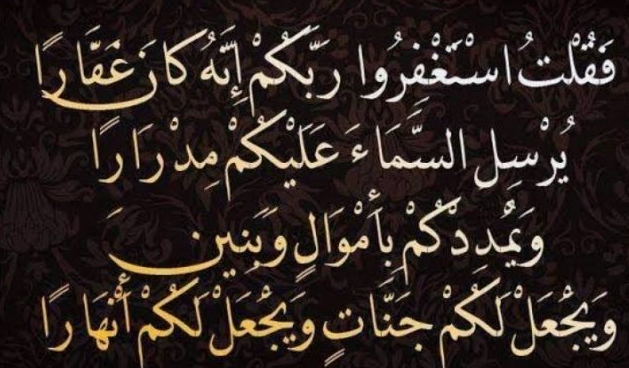 فَقُلْتُ اسْتَغْفِرُوا رَبَّكُمْ إِنَّهُ كَانَ غَفَّارًا
يُرْسِلِ السَّمَاءَ عَلَيْكُمْ مِدْرَارًا
وَيُمْدِدْكُمْ بِأَمْوَالٍ وَبَنِينَ
وَيَجْعَلْ لَكُمْ جَنَّاتٍ وَيَجْعَلْ لَكُمْ أَنْهَارًا